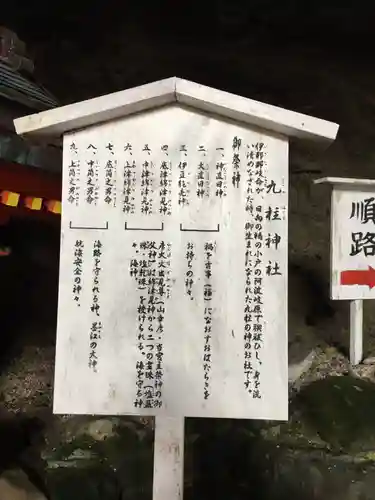 九柱神社
伊邪那岐命が、日向の橘の小戸の阿波岐原で禊祓し、身を洗
い清めなされた時、御生まれになられた九柱の神のお社です。
御祭神
一、神直日神
二、大直日神
三、伊豆能売神
禍を吉事(福)になおすおはたらきを
お持ちの神々。
四、底津綿津見神
五、中津綿津見神
六、上津綿津見神
彦火火出見尊(山幸彦・当宮主祭神の御
父神)は綿津見神から二つの霊珠(塩盈
珠、塩乾珠)を授けられる。海を守る神
々。海神
七、底筒之男命
八、中筒之男命
九、上筒之男命
海路を守られる神、墨江の大神。
航海安全の神々。
順路